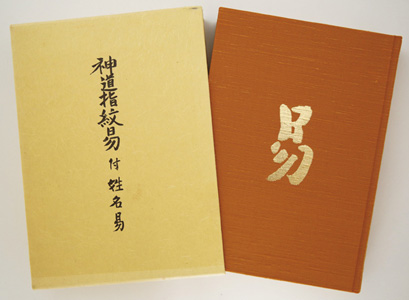 神道指紋易 付 姓名易
易